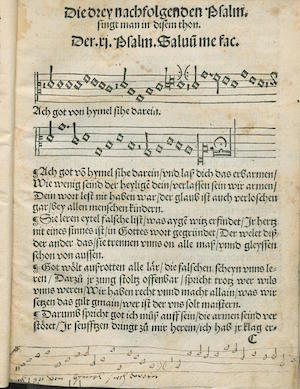 Die drey nachfolgenden Psalm.
singt man in disem thon.
Der .xj. Psalm. Saluū me fac.
Ach got von hymel sihe darein.
¶ Ach got vō hymel sihe darein/vnd laß dich das erbarmen/
Wie wenig seind der heyligē dein/verlassen sein wir armen/
Dein wort lest mā haben war/der glaub ist auch verloschen
gar/bey allen menschen kindern.
¶ Sie leren eytel falsche list/was aygē witz erfindet/Jr hertz
nit eines sinnes ist/in Gottes wort gegründet/Der welet diß
der ander das/sie trennen vnns on alle maß/vnnd gleyssen
schon von aussen.
¶ Got wölt außrotten alle lär/die falschen scheyn vnns le-
ren/Darzū jr zung stoltz offenbar/spricht trotz wer wils
vnns weren/Wir haben recht vnnd macht allain/was wir
setzen das gilt gmain/wer ist der vns solt maistern.
¶ Darumb spricht got ich můß auff sein/die armen seind ver
störet/Jr seufftzen dringt zů mir herein/ich hab jr klag er-
C